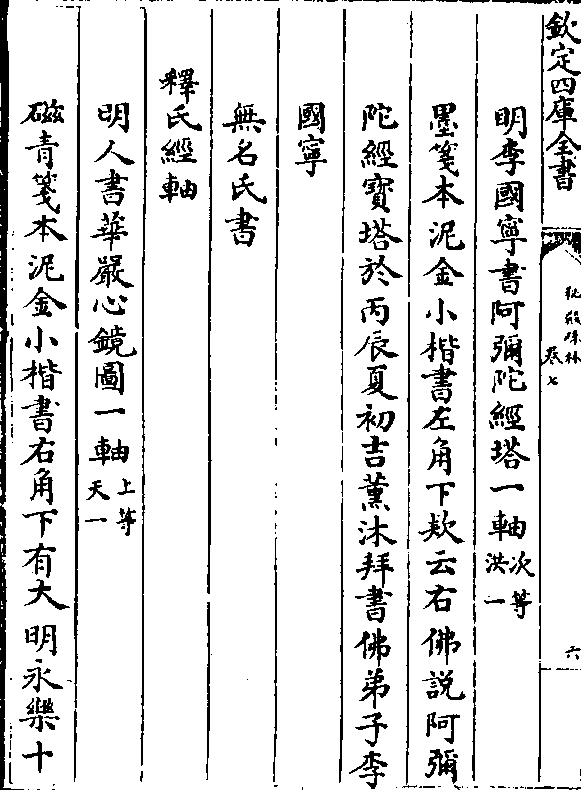 欽定四庫全書
秘殿珠林
卷七
六
明李國寧書阿彌陀經塔一軸次等洪一
墨箋本泥金小楷書左角下欵云右佛說阿彌
陀經寶塔於丙辰夏初吉薰沐拜書佛弟子李
國寧
無名氏書
釋氏經軸
明人書華嚴心鏡圖一軸上等天一
磁青箋本泥金小楷書右角下有大明永樂十